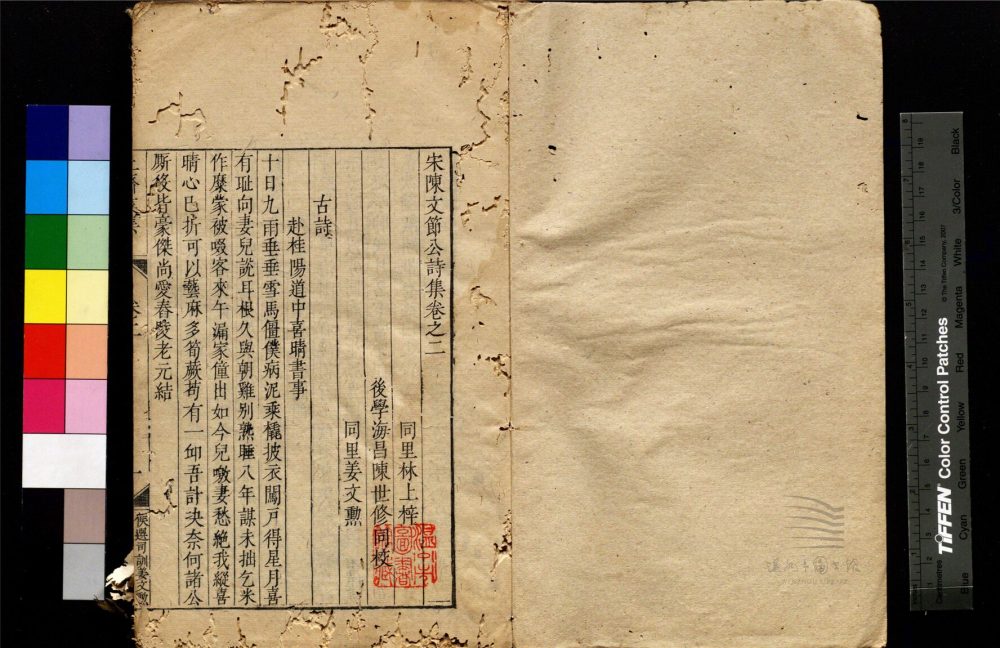 宋陳文節公詩集卷之二
同里林上梓
後學海昌陳世修同校
同里姜文勲
古詩
赴桂陽道中喜晴書事
十日九雨垂垂雪馬僵僕病泥乘橇披衣闖戸得星月喜
有耻向妻兒説耳根久與朝雞别熟睡八年謀未拙乞米
作糜蒙被啜客來午漏家僮出如今兒噭妻愁絶我縱喜
晴心巳折可以藝麻多筍蕨茍有一邱吾計决奈何諸公
厮役皆豪傑尚愛舂陵老元結
候選司訓姜文勲
溫州市圖書館
WENZHOU LIBRARY
TIFFEN Color Control Patches
© The Tiffen Company, 2007
Centimetres
Blue
Cyan
Green
Yellow
Red
Magenta
White
3/Color
Black